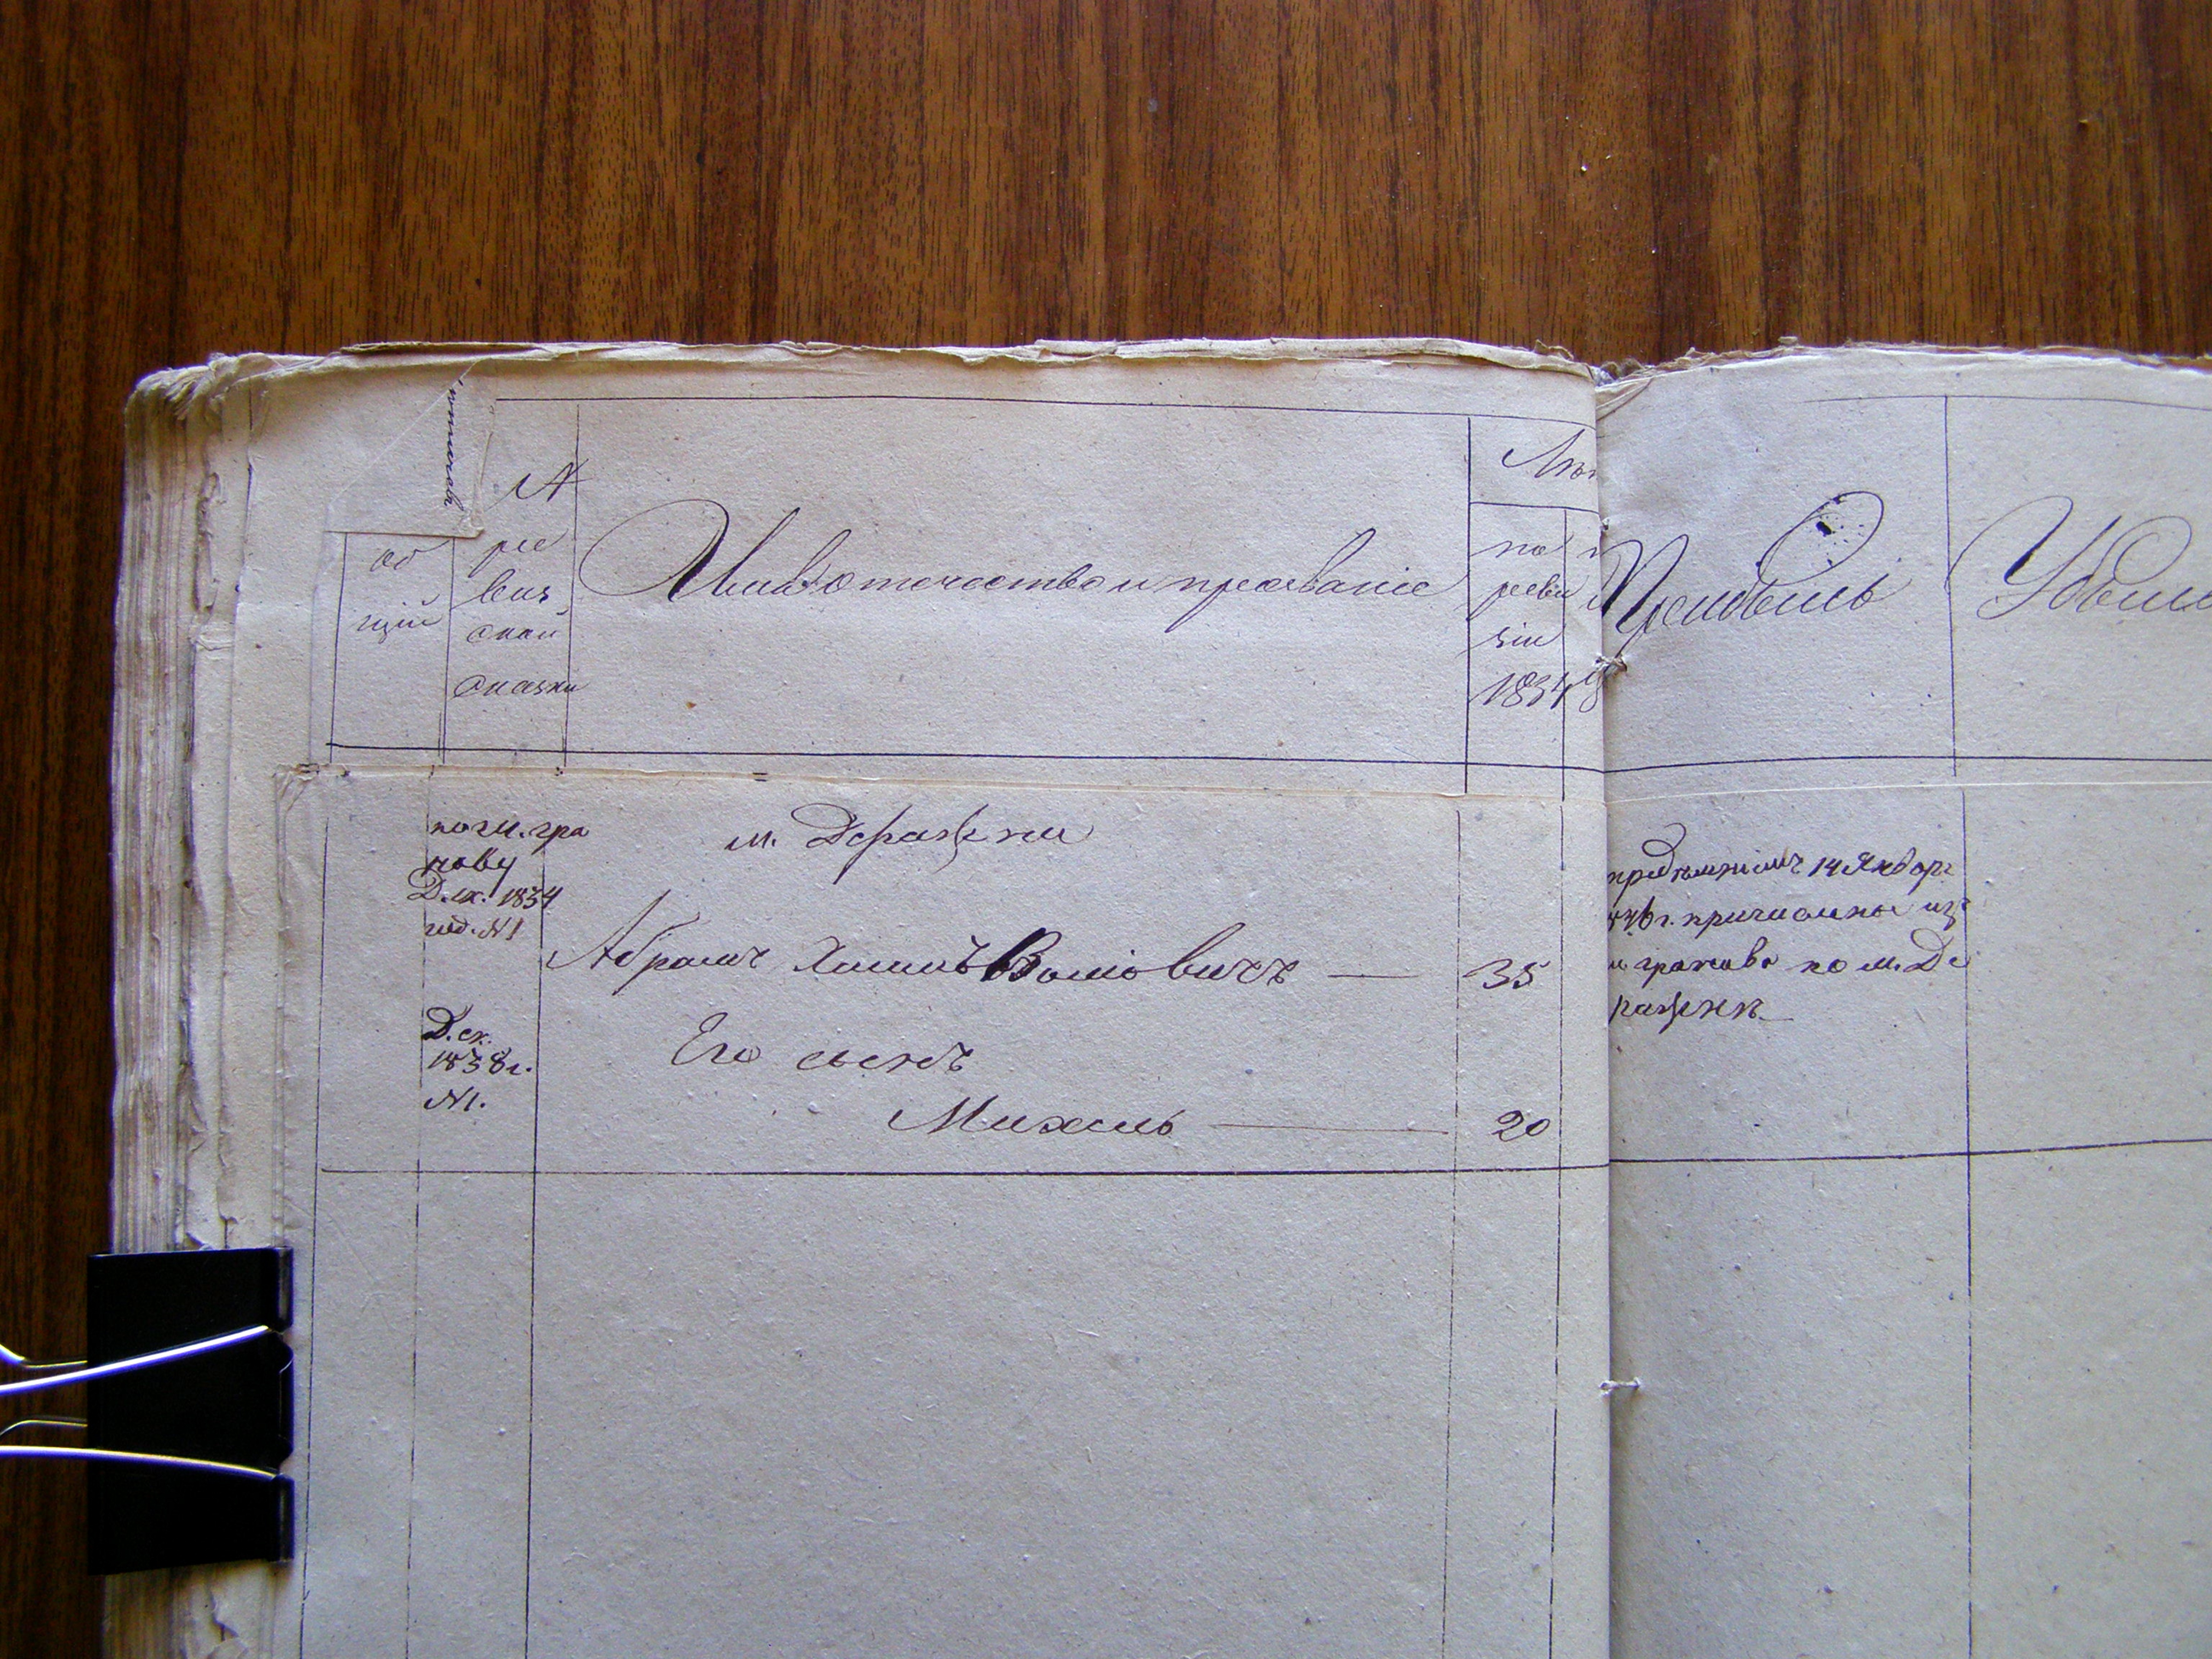 №
об
щій
ре
виз
ской
сказки
Имя отчество и прозваніе
Лѣт
по
реви
зіи
1834
Прибыль
Убыль
по м. гра
нову
Д. ск. 1834
год. №1
м. Деражни
Абрамъ Хаимъ Воліовичъ — 35
Д. ск.
1838 г.
№1.
Его сынъ
Михель — 20
предписаніемъ 14 Январ
г. причислены изъ
м. гранова по м. Де
ражнѣ